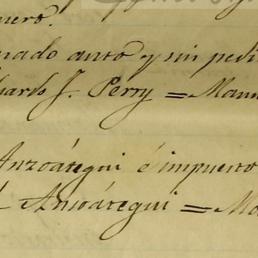 nero.
nado auto y sin pedi
hardo J. Perry = Manu
Anzoátegui é impuesto
Anzoátegui = Ma